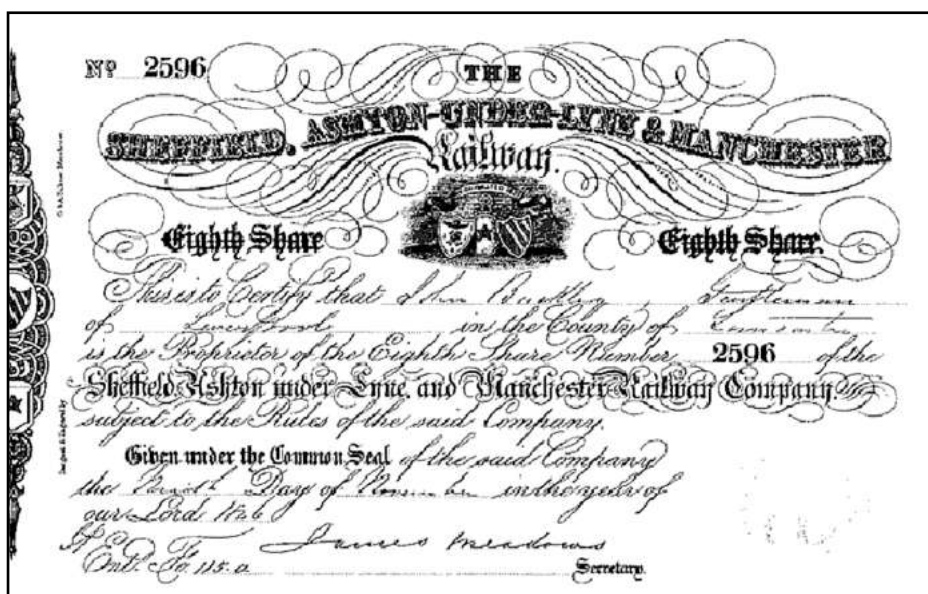 Nº 2596
THE
SHEFFIELD, ASHTON-UNDER-LYNE & MANCHESTER
Railway.
Eighth Share Eighth Share.
This is to Certify that John Buckley, Gentleman
of Liverpool in the County of
is the Proprietor of the Eighth Share Number 2596 of the
Sheffield Ashton under Lyne, and Manchester Railway Company.
subject to the Rules of the said Company.
Given under the Common Seal of the said Company
the Day of in the year of
our Lord 1846
Entd. Fo. 115.a James Meadows
Secretary.